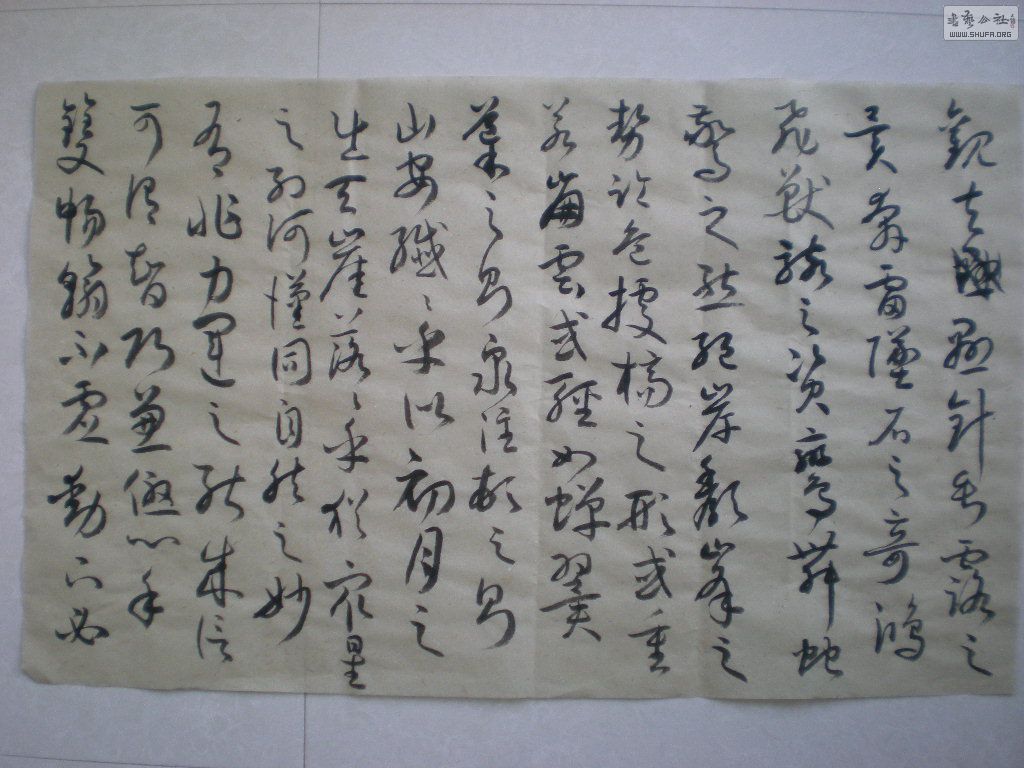 觀夫懸針垂露之
異奔雷墜石之奇鴻
飛獸駭之資鸞舞蛇
驚之態絕岸頹峯之
勢臨危據槁之形或重
若崩雲或輕如蟬翼
導之則泉注頓之則
山安纖〻乎似初月之
出天崖落〻乎猶衆星
之列河漢同自然之妙
有非力運之能成信
可謂智巧兼優心手
雙暢翰不虛動下必
書藝公社
WWW.SHUFA.ORG